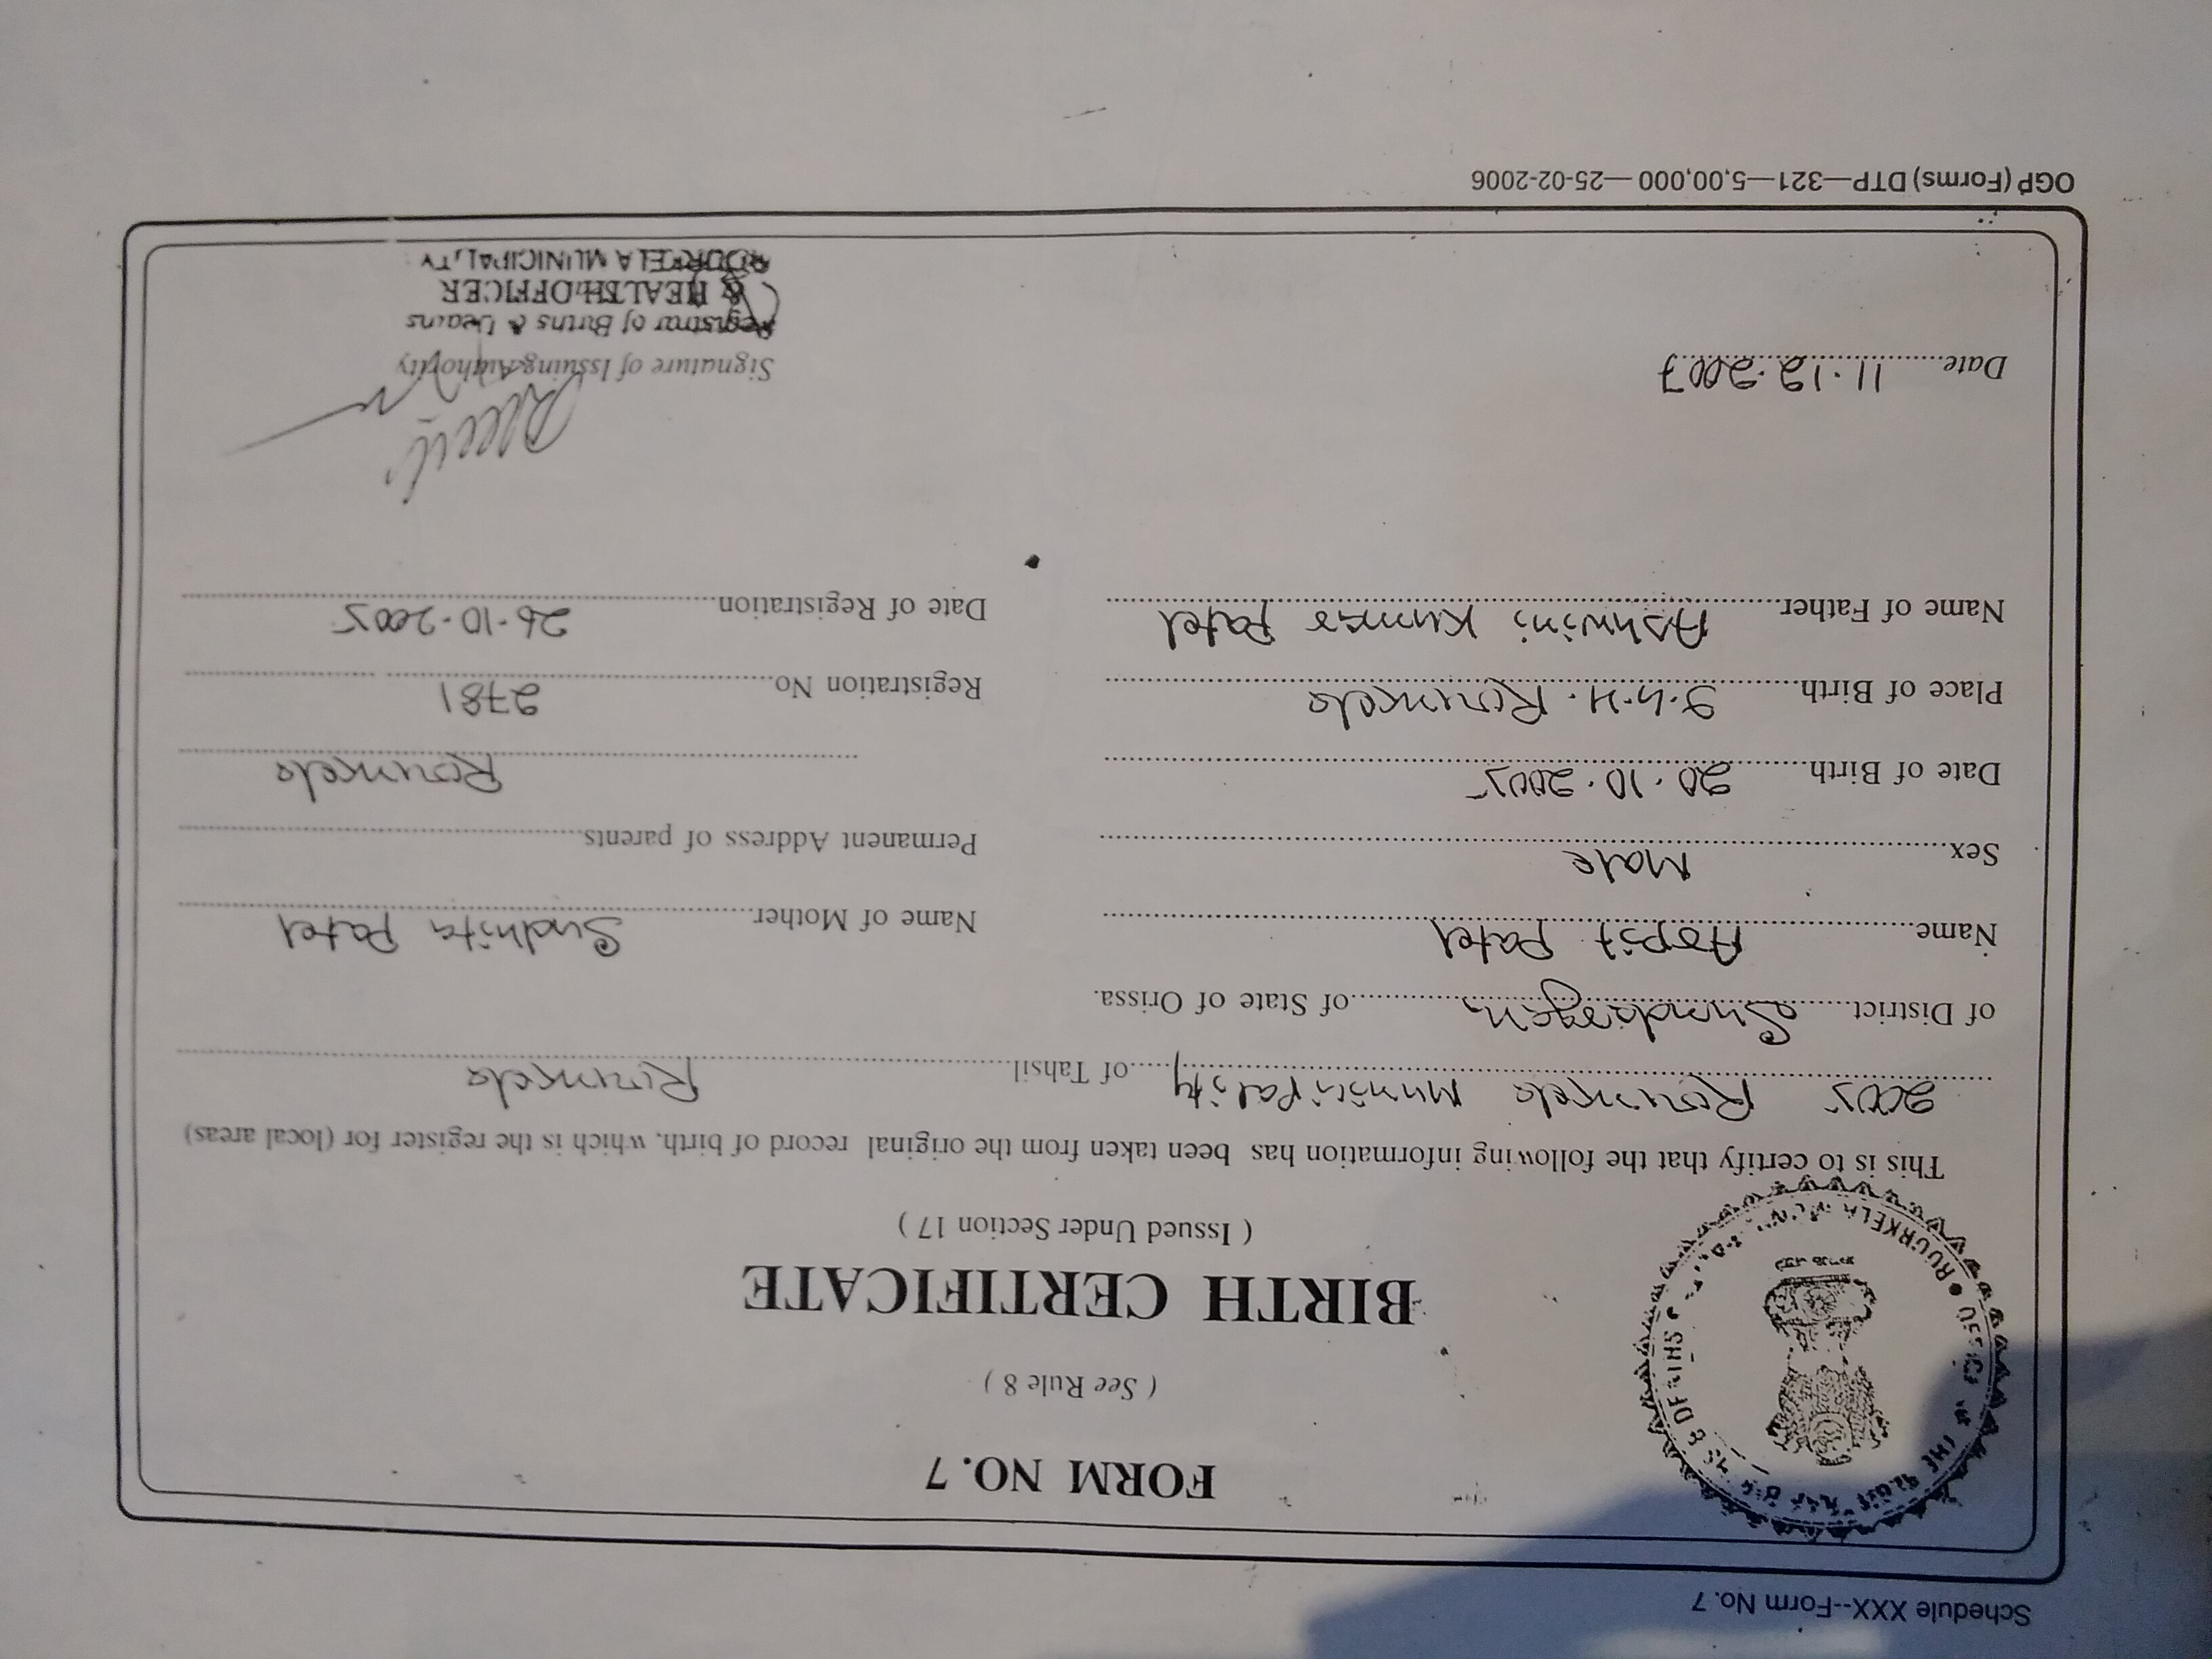 Schedule XXX--Form No. 7
FORM NO. 7
( See Rule 8 )
BIRTH CERTIFICATE
( Issued Under Section 17 )
This is to certify that the following information has been taken from the original record of birth, which is the register for (local areas)
2005 Rourkela Municipality of Tahsil Rourkela
of District Sundargarh of State of Orissa.
Name Arpit Patel
Sex Male
Date of Birth 20.10.2005
Place of Birth Rourkela
Name of Father Ashwini Kumar Patel
Name of Mother Sudhita Patel
Permanent Address of parents
Rourkela
Registration No. 2781
Date of Registration 26.10.2005
Date 11.12.2007
Signature of Issuing Authority
Registrar of Births & Deaths
& HEALTH OFFICER
ROURKELA MUNICIPALITY
OGP (Forms) DTP—321—5,00,000—25-02-2006